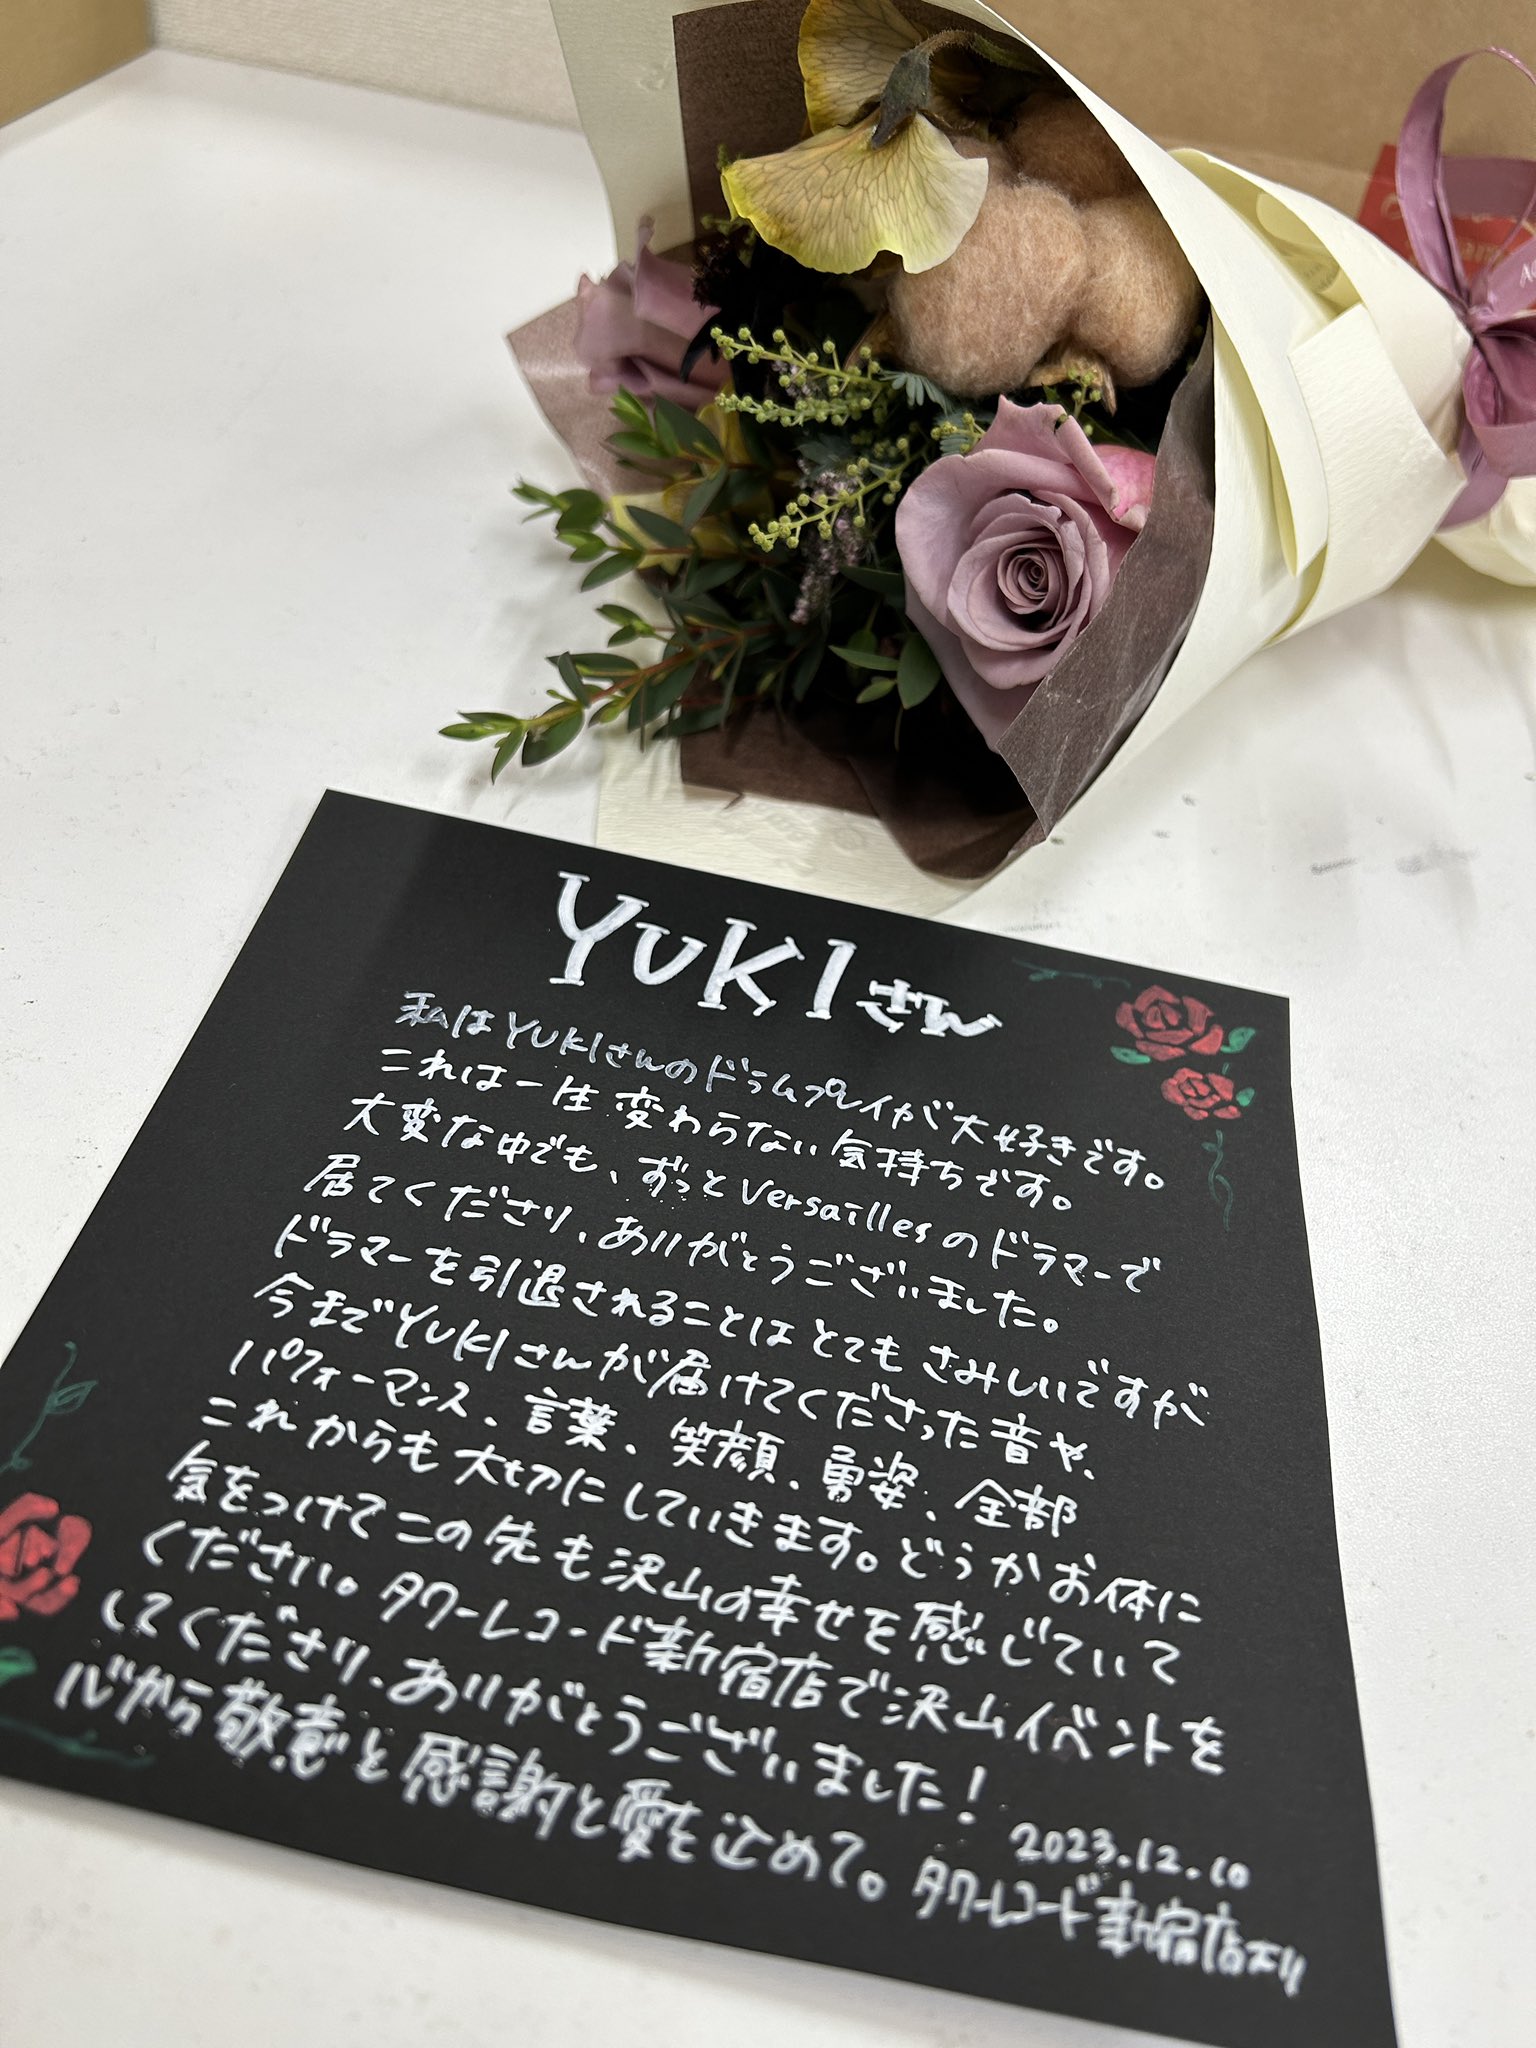 YUKIさん
私はYUKIさんのドラムプレイが大好きです。
これは一生変わらない気持ちです。
大変な中でも、ずっとVersaillesのドラマーで
居てくださり、ありがとうございました。
ドラマーを引退されることはとてもさみしいですが
今までYUKIさんが届けてくださった音や、
パフォーマンス、言葉、笑顔、勇姿、全部
これからも大切にしていきます。どうかお体に
気をつけてこの先も沢山の幸せを感じていて
ください。タワーレコード新宿店で沢山イベントを
してくださり、ありがとうございました!
心から敬意と感謝と愛を込めて。
2023.12.10
タワーレコード新宿店より